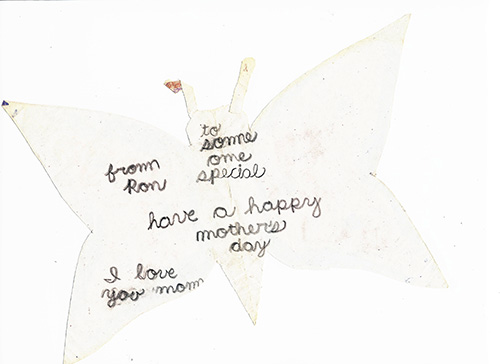 to
some
one
special
from
Ron
have a happy
mothers
day
I love
you mom